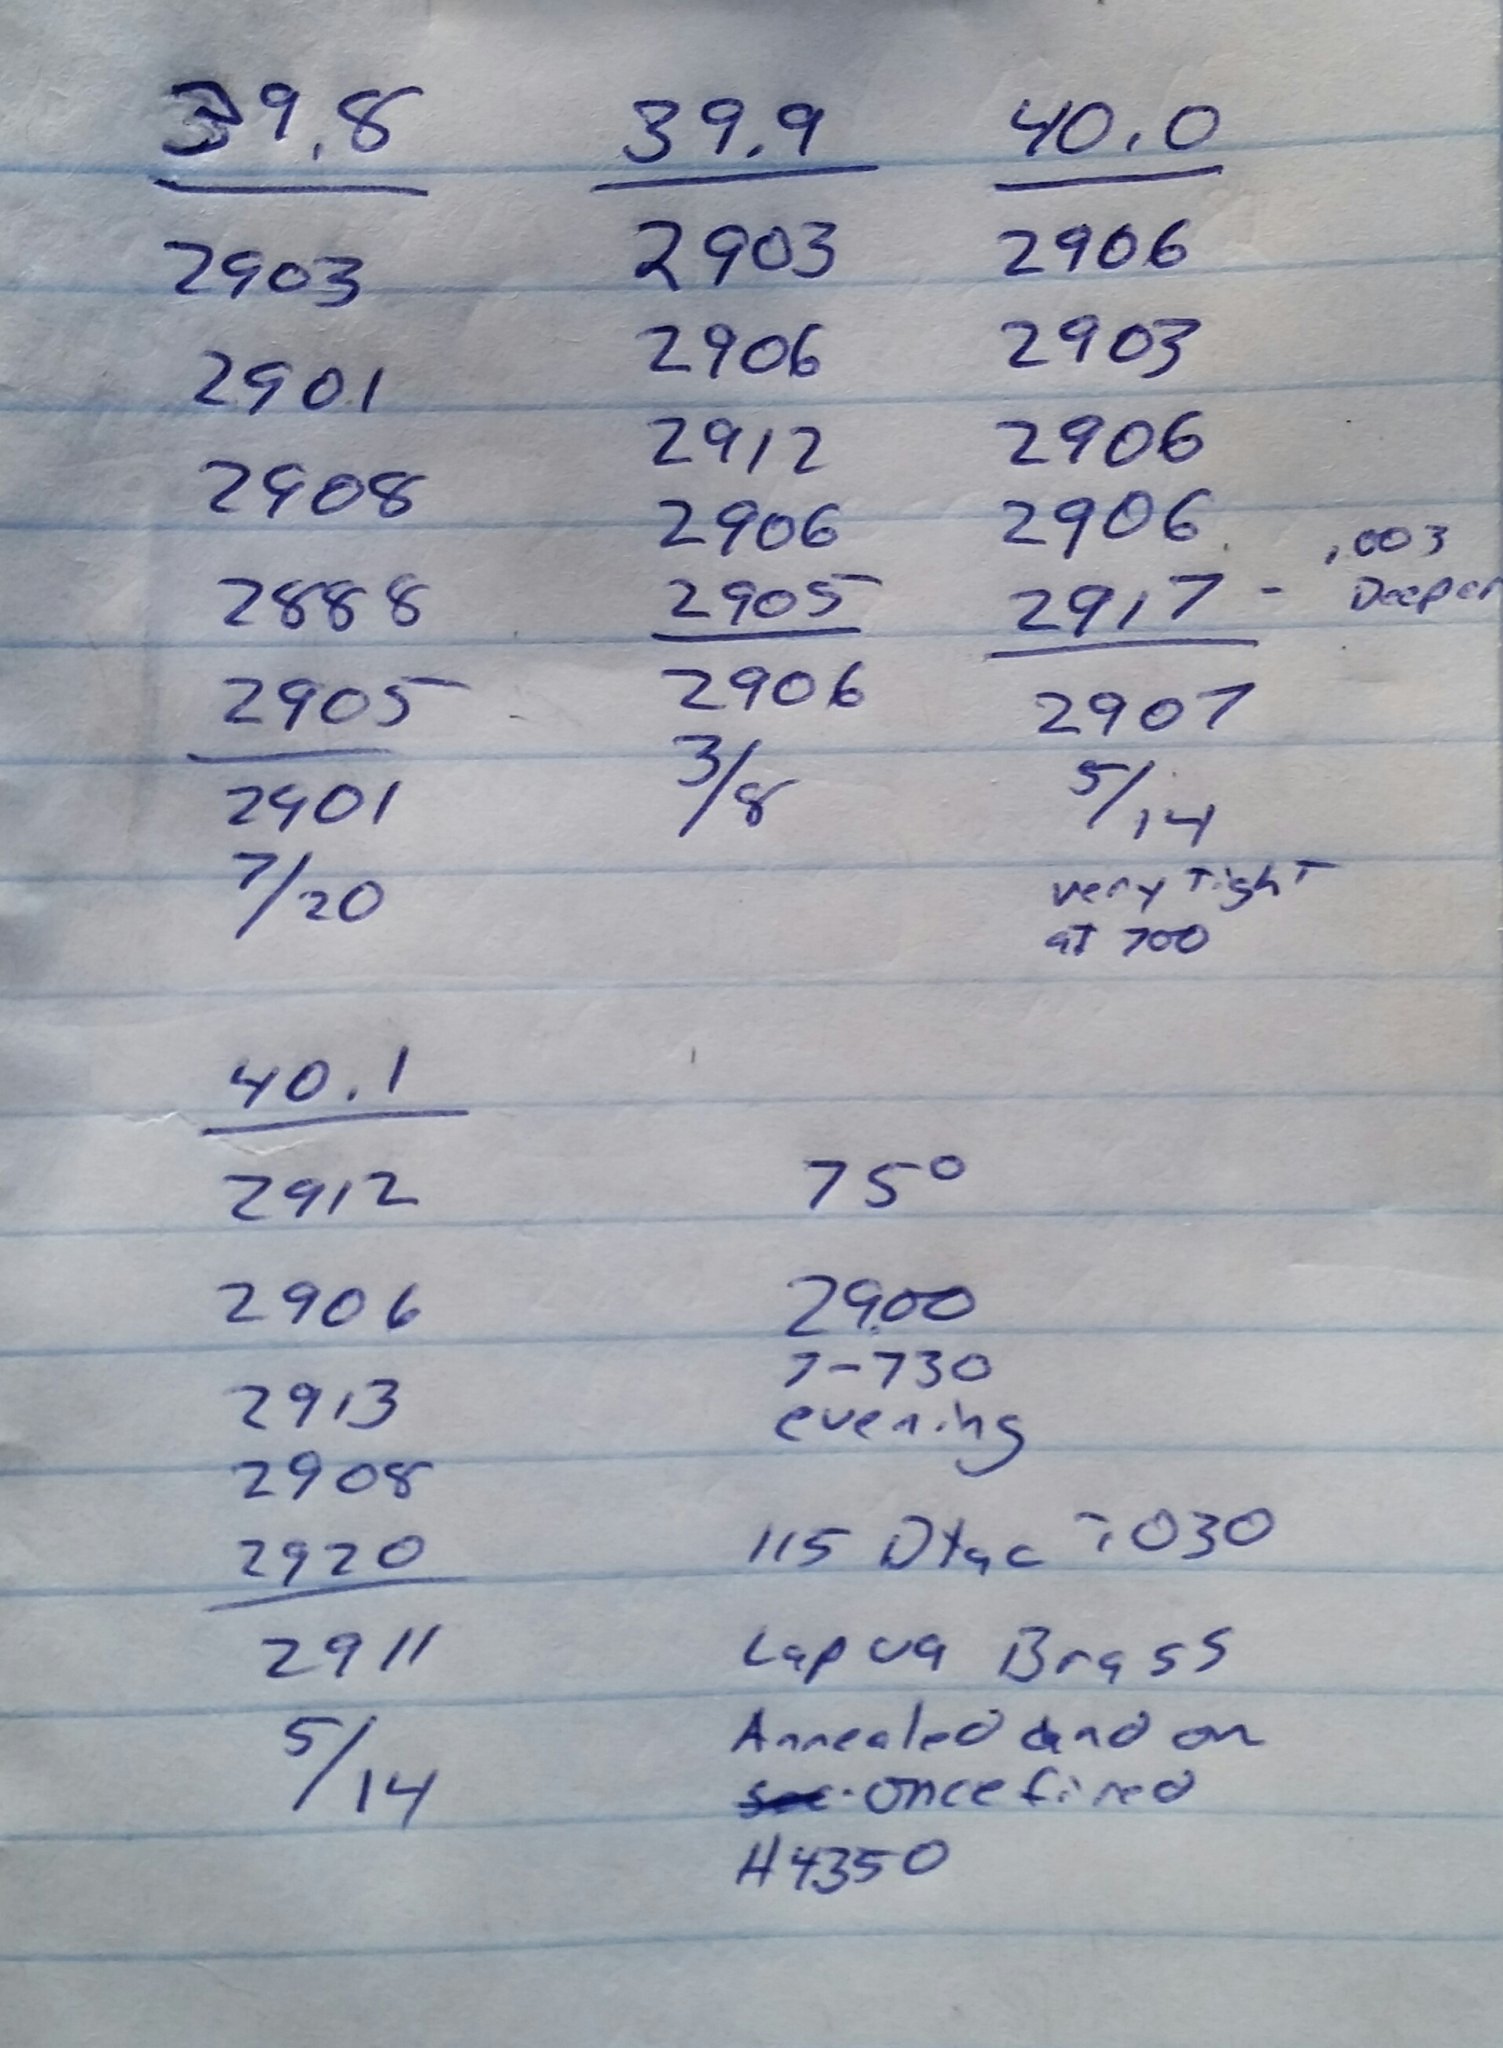 39.8
2903
2901
2908
2888
2905
2901
7/20
39.9
2903
2906
2912
2906
2905
2906
3/8
40.0
2906
2903
2906
2906
2917 - .003 Deeper
2907
5/14
very tight
at 700
40.1
2912
2906
2913
2908
2920
2911
5/14
75°
2900
7-730
evening
115 Dtac .030
Lapua Brass
Annealed and on
once fired
H4350